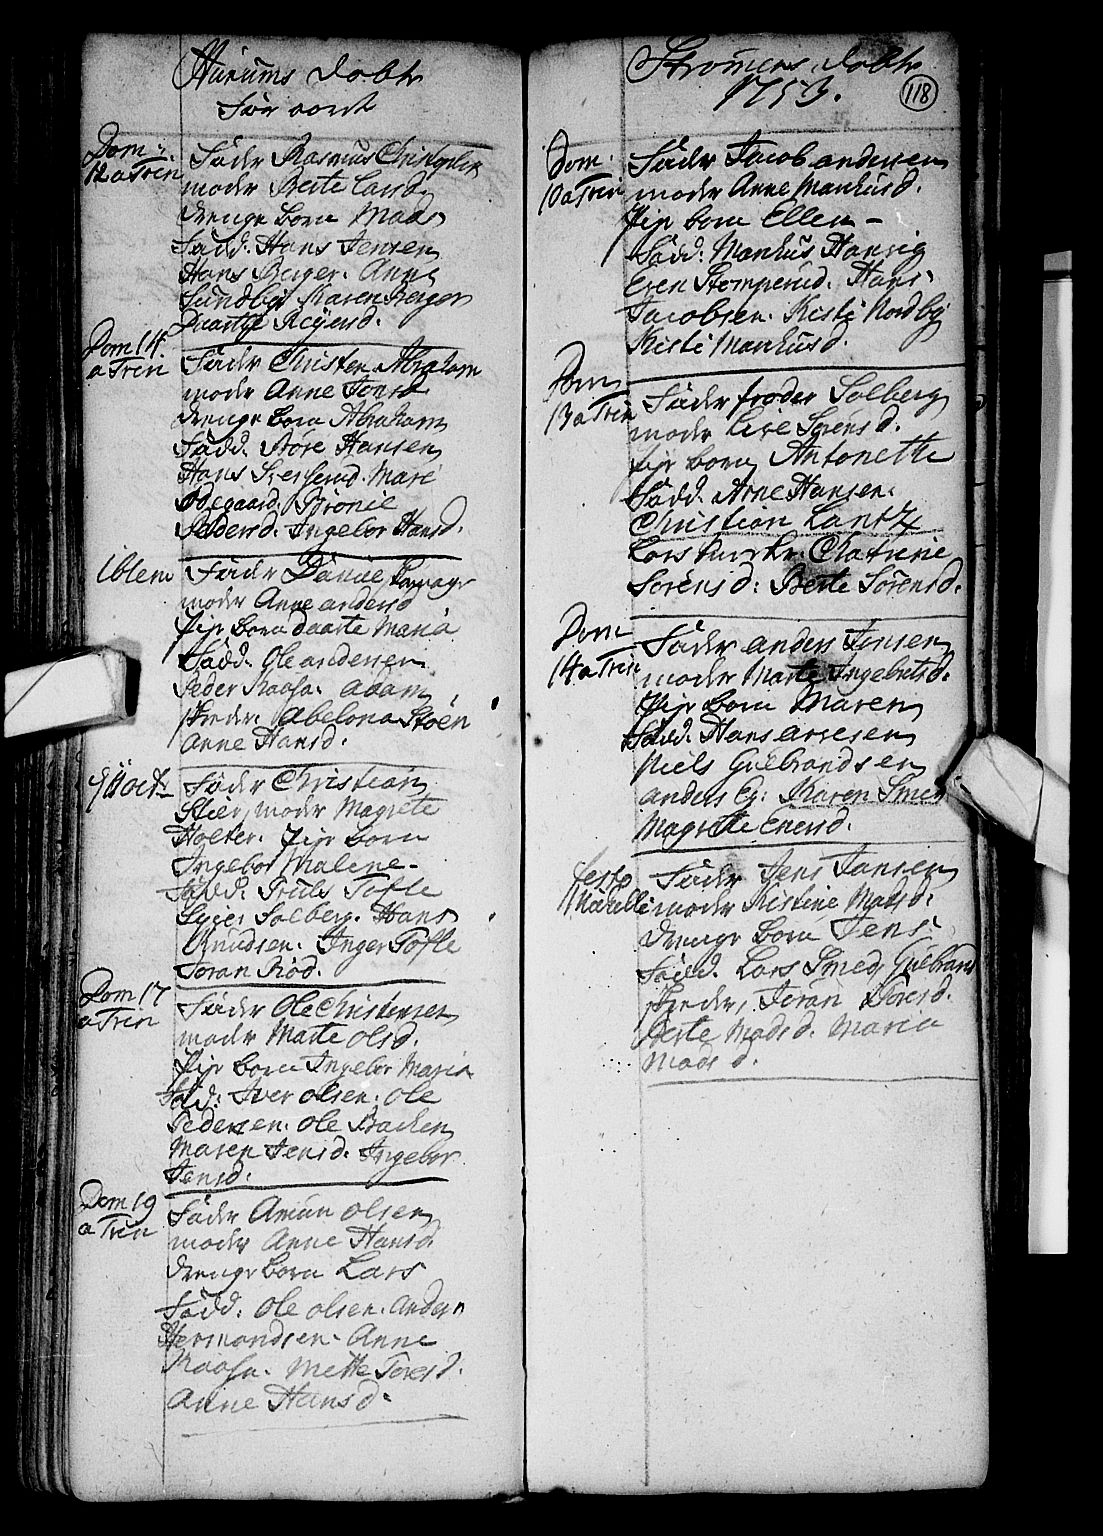 Hurums døbte
før vort
Dom:
12 a Tren
Fader Rasmus Christophers
moder Berte Larsd
drenge barn Mads
Fadd. Hans Jensen
Hans Berger. Anne
Sundbÿ Karen Berger
Daarthe Reyersd.
Dom 14.
a Tren
Fader Christen Abraham
moder Anne Jonsd
drenge barn Abraham
Fadd. Tore Hansen
Hans Mari
Ødegaard. Brønie
Pedersd. Ingebor Hansd.
ibtem
Fader Daniel
moder Anne andersd
Pige barn Daarte Maria
Fadd. Ole andersen
Peder Kaasa. adam
Abelona Støen
Anne Hansd.
9 8oct
Fader Christian
Stier, moder Magrete
Holter. Pige barn
Ingebor Malene-
Fadd. Truls Tofte
Syver Solberg. Hans
Knudsen. Inger Tofte
Joran Rød.
Dom 17
a Tren
Fader Ole Christensen
moder Marte olsd.
Pige barn Ingebor Maria
Fadd. Iver olsen. ole
Pedersen. ole Backen
Maren Jensd. Ingebor
Jensd.
Dom 19
a Tren
Fader Amun olsen
moder Anne Hansd.
drenge barn Lars
Fadd. ole olsen. Anders
Hermandsen. Anne
Kaasa. Mette Toresd.
Anne Hansd.
Strømens døbte
1753.
118
Dom.
10 a Tren
Fader Jacob andersen
moder Anne Manhusd.
Pige barn Ellen -
Fadd. Manhus Hanvig
Even Stomperud. Hans
Jacobsen. Kisti Nordbÿ
Kisti Manhusd.
Dom
13 a Tren
Fader frøder Solberg
moder Live Sørensd.
Pige barn Antonette
Fadd. Arne Hansen.
Christian Lantz
Lars Catrine
Sørensd: Berte Sørensd.
Dom
14 a Tren
Fader anders Jensen
moder Marte Ingebretsd.
Pige barn Maren
Fadd: Hans arvesen
Niels Gulbrandsen
anders Eg: Karen Smed
Magrette Enersd.
festo
Michaelis
Fader Jens Jansen
moder Kistine Madsd.
drenge barn Jens
Fadd. Lars Smed, Gulbrand
Joran Toresd.
Berte Madsd. Maria
Madsd.